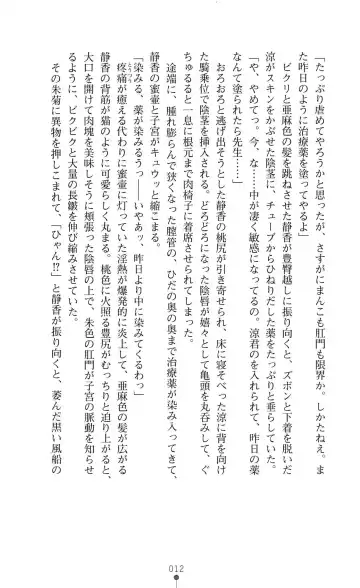 「たっぷり虐めてやろうかと思ったが、さすがにまんこも肛門も限界か。しかたねえ。ま
た昨日のように治療薬を塗ってやるよ」
ビクリと亜麻色の髪を跳ねさせた静香が豊臀越しに振り向くと、ズボンと下着を脱いだ
涼がスキンをかぶせた陰茎に、チューブからひねりだした薬をたっぷりと垂らしていた。
「や、やめてっ。今、な……中が凄く敏感になってるの。涼君のを入れられて、昨日の薬
なんて塗られたら先生……」
おろおろと逃げ出そうとした静香の桃尻が引き寄せられ、床に寝そべった涼に背を向け
た騎乗位で陰茎を挿入される。どろどろになった陰唇が嬉々として亀頭を丸呑みして、ぐ
ちゅるると一息に根元まで肉椅子に着席させられてしまった。
途端に、腫れ膨らんで狭くなった膣管の、ひだの奥の奥まで治療薬が染み入ってきて、
静香の蜜壺と子宮がキュウッと縮こまる。
「染みる、薬が染みるぅっ――いやぁッ、昨日より中に染みてくるわっ」
疼痛が癒える代わりに蜜壺に灯っていた淫熱が爆発的に炎上して、亜麻色の髪が広がる
静香の背筋が猫のように可愛らしく丸まる。桃色に火照る豊尻がむっちりと迫り上がると、
大口を開けて肉塊を美味しそうに頬張った陰唇の上で、朱色の肛門が子宮の脈動を知らせ
るように、ピクピクと大量の長皺を伸び縮みさせていた。
その朱菊に異物を押しこまれて、「ひゃん!?」と静香が振り向くと、萎んだ黒い風船の
012